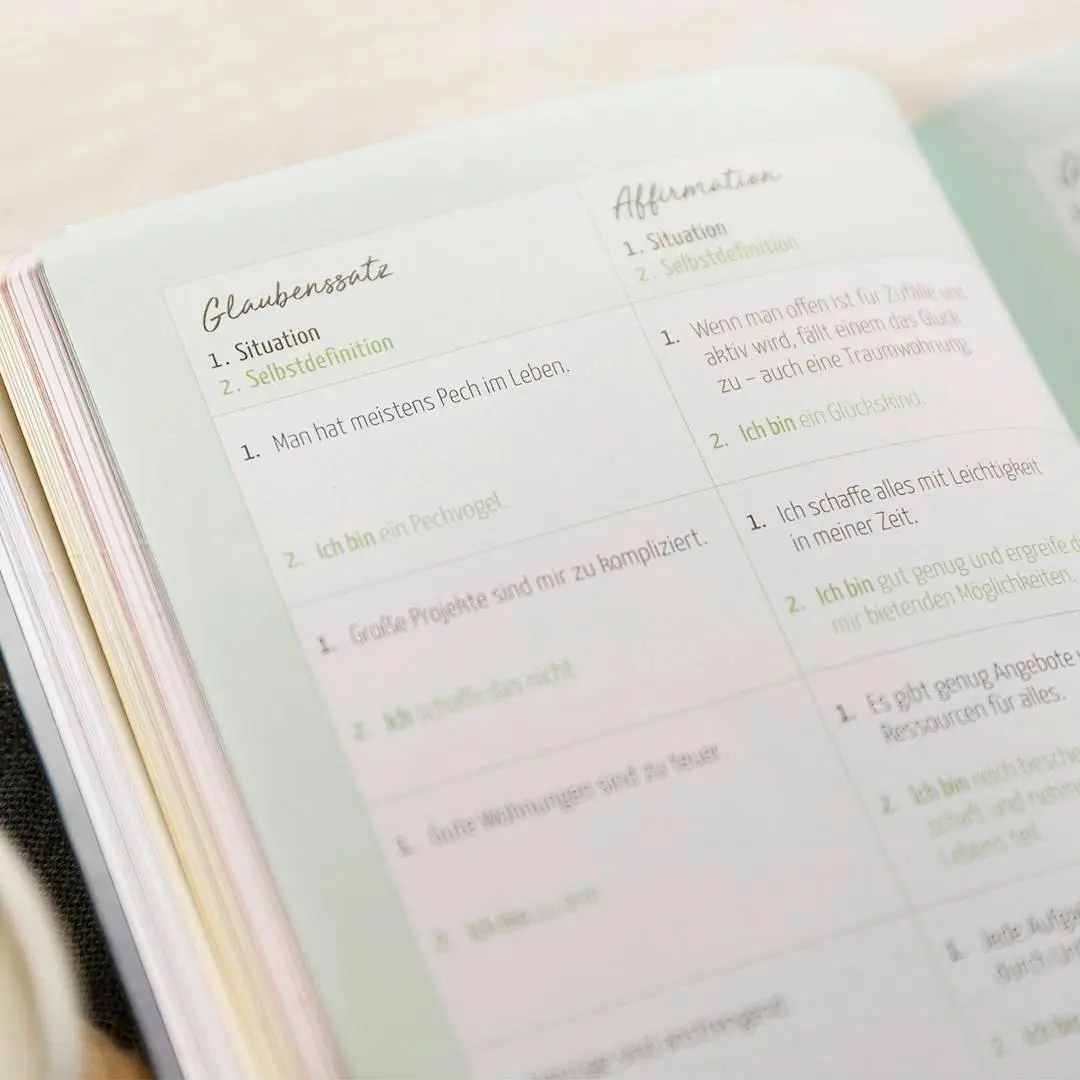 Glaubenssatz
1. Situation
2. Selbstdefinition
Affirmation
1. Situation
2. Selbstdefinition
1. Man hat meistens Pech im Leben.
2. Ich bin ein Pechvogel.
1. Wenn man offen ist für Zufälle und
aktiv wird, fällt einem das Glück
zu – auch eine Traumwohnung.
2. Ich bin ein Glückskind.
1. Große Projekte sind mir zu kompliziert.
2. Ich schaffe das nicht.
1. Ich schaffe alles mit Leichtigkeit
in meiner Zeit.
2. Ich bin gut genug und ergreife
mir bietenden Möglichkeiten.
1. Gute Wohnungen sind zu teuer.
2. Ich bin
1. Es gibt genug Angebote
Ressourcen für alles.
2. Ich bin reich
und
Lebens teil.
1. Jede
durch
2. Ich
sind